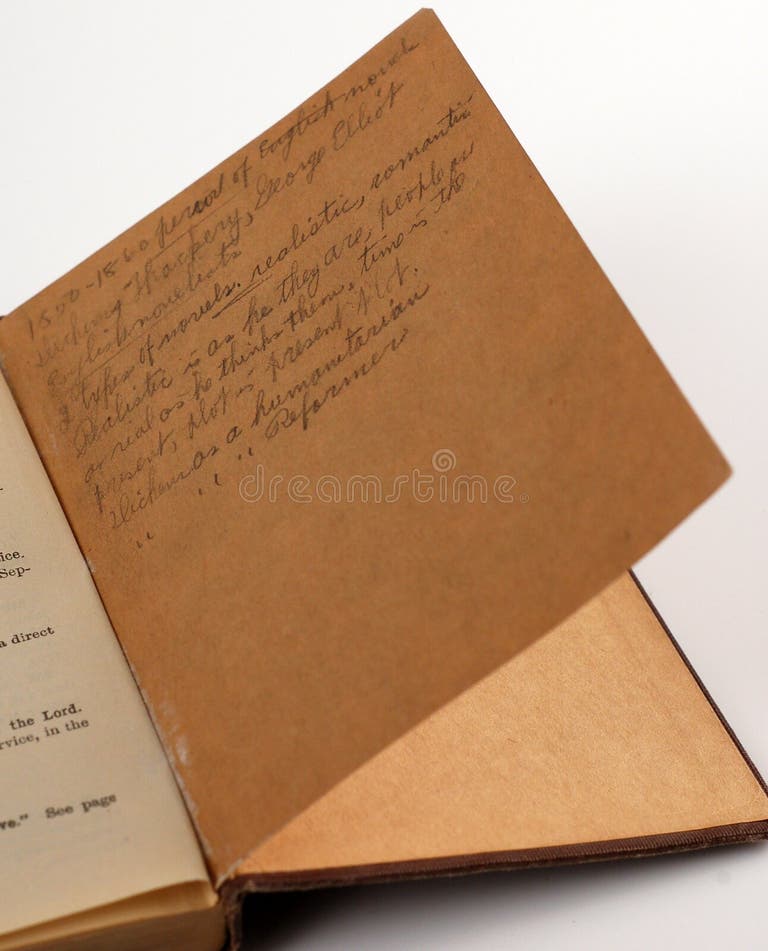 1850-1860 period of English novels
Dickens, Thackery, George Elliot
English novelists
2 types of novels. realistic, romantic
Realistic is as he they are, people as
as real as he thinks them, time is the
present, plot is present plot.
Dickens as a humanitarian
" " " Reformer
ice.
Sep-
a direct
the Lord.
rvice, in the
ve." See page
dreamstime.com